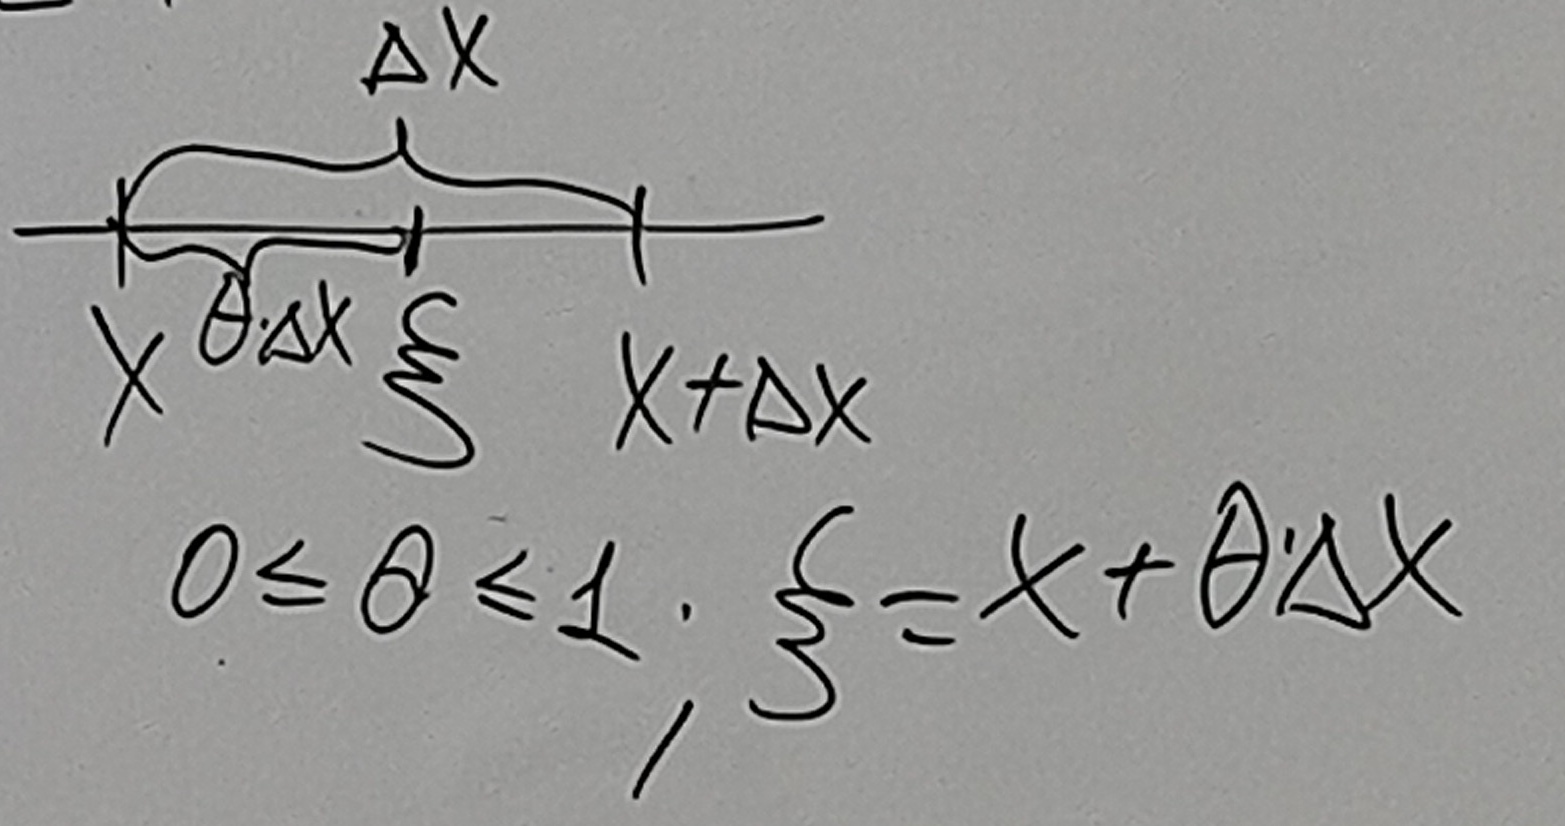 ΔX
X θ·ΔX ξ X+ΔX
0 ≤ θ ≤ 1; ξ = X + θ·ΔX